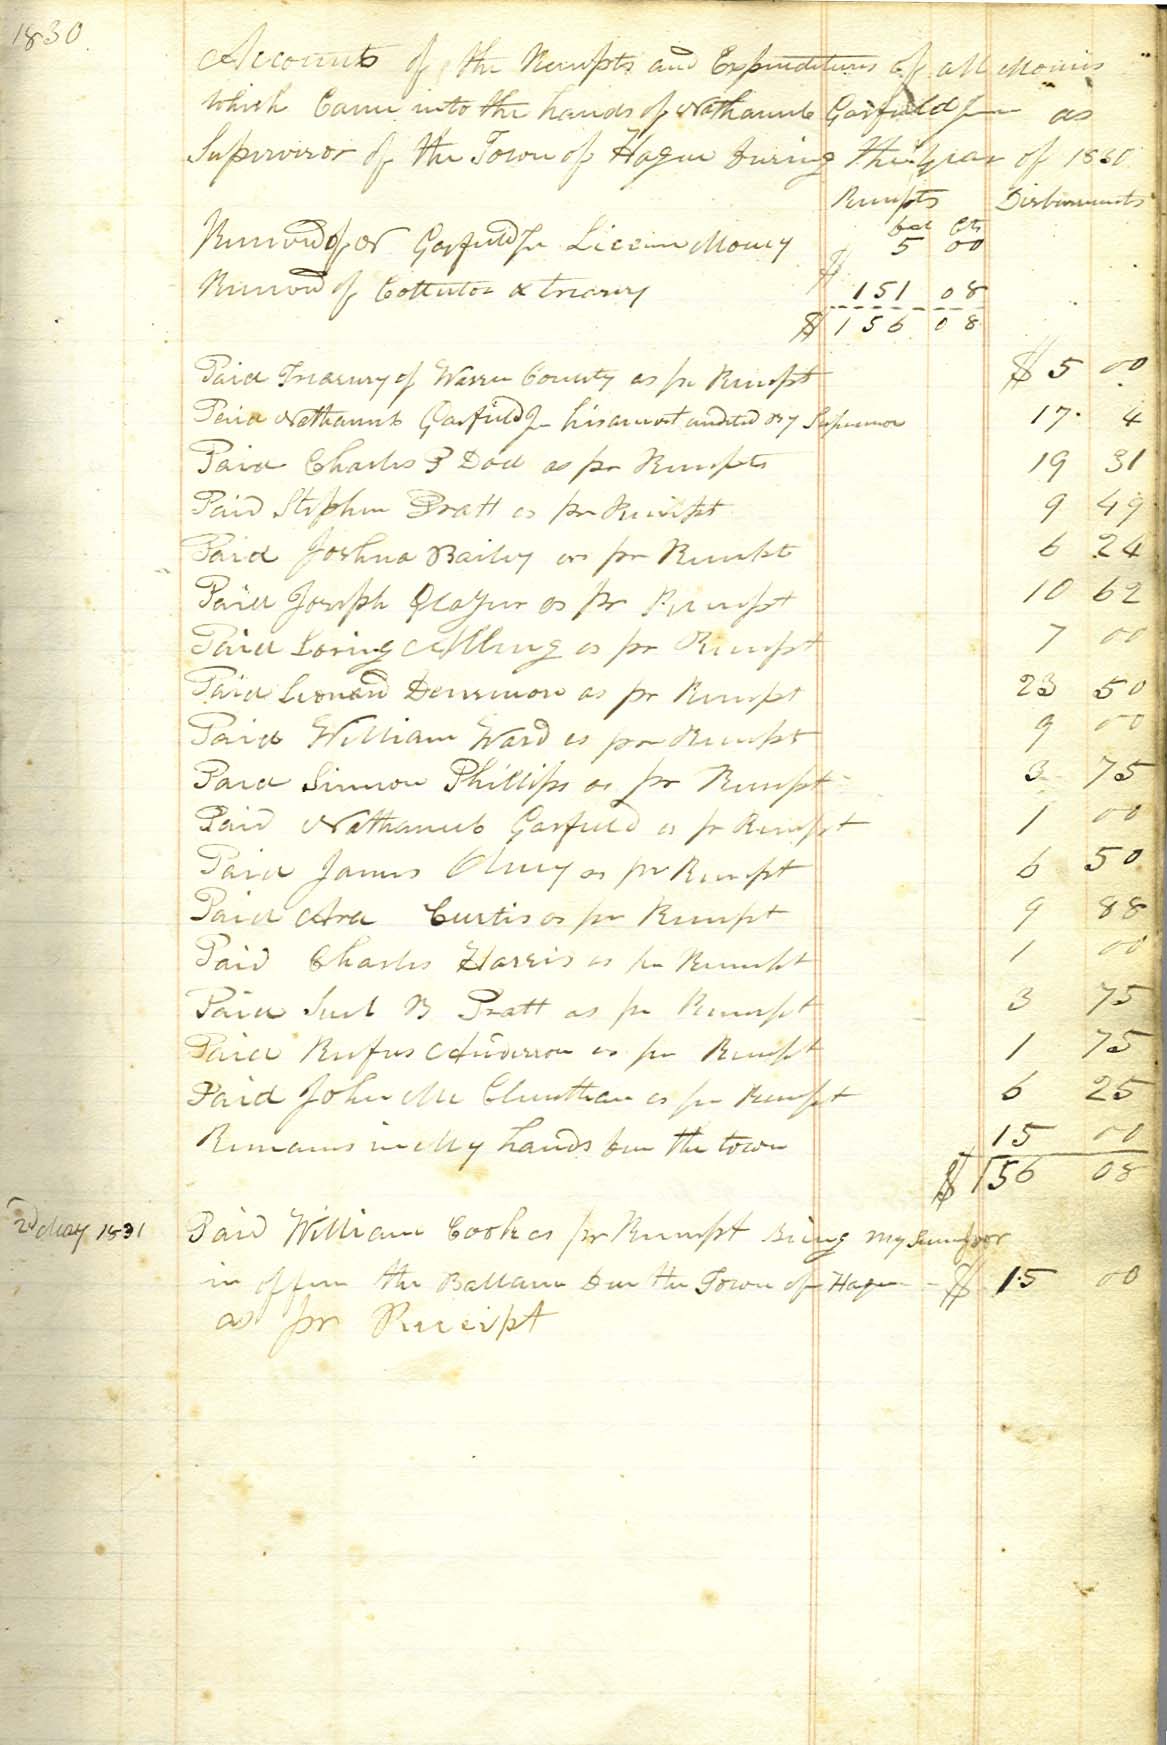 1830
Accounts of the Receipts and Expenditures of all Monies
which Came into the hands of Nathaniel Garfield Jur as
Supervisor of the Town of Hague during the year of 1830
Receipts Disbursments
Dol Cts
Received of N Garfield Jr License Money $ 5 00
Received of Collector & treasury 151 08
$ 156 08
Paid Treasury of Warren County as pr Receipt $ 5 00
Paid Nathaniel Garfield Jr his amount audited by Supervisor 17. 4
Paid Charles P Doll as pr Receipts 19 31
Paid Stephen Pratt as pr Receipt 9 49
Paid Joshua Bailey as pr Receipt 6 24
Paid Joseph as pr Receipt 10 62
Paid Loring Alling as pr Receipt 7 00
Paid Leonard Densmore as pr Receipt 23 50
Paid William Ward as pr Receipt 9 00
Paid Simeon Phillips as pr Receipt 3 75
Paid Nathaniel Garfield as pr Receipt 1 00
Paid James as pr Receipt 6 50
Paid Ara Curtis as pr Receipt 9 88
Paid Charles Harris as pr Receipt 1 00
Paid Joel B Pratt as pr Receipt 3 75
Paid Rufus Anderson as pr Receipt 1 75
Paid John Mc Clenathan as pr Receipt 6 25
Remains in My hands due the town 15 00
$ 156 08
2d May 1831 Paid William Cook as pr Receipt Being my Successor
in office the Ballance Due the Town of Hague - $ 15 00
as pr Receipt